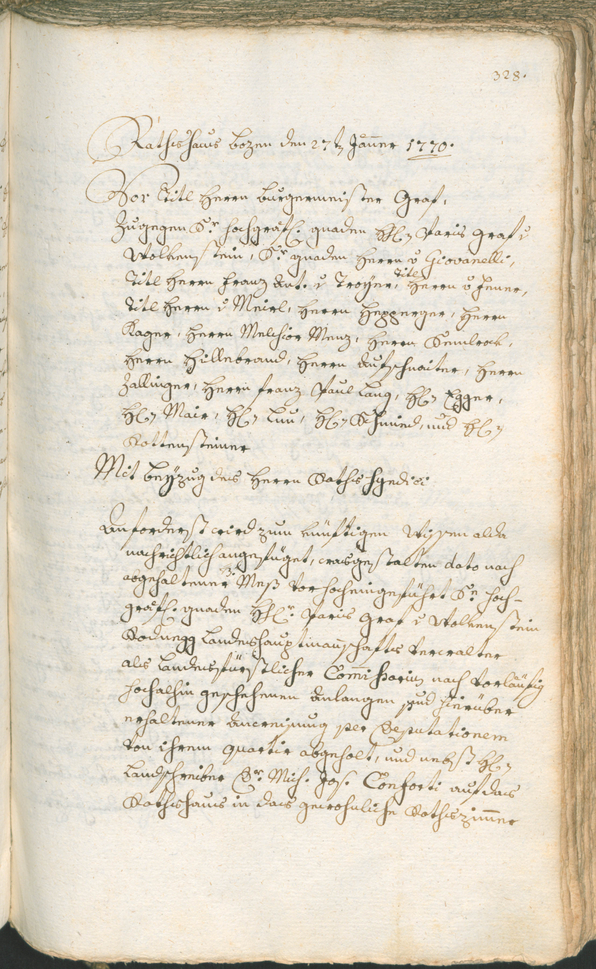 328.
Rathshaus Bozen den 27ten Jäner 1770.
Vor Titl Herrn Burgermeister Graf,
Zugegen Sr. hochgräfl. gnaden H: Paris Graf v
Wolkenstein, Sr. gnaden Herrn v Giovanelli,
Titl Herrn Franz Ant. v Troyer, Titl Herrn v Jener,
Titl Herrn v Meirl, Herrn Hepperger, Herrn
Kager, Herrn Melchior Menz, Herrn
Herrn Hillebrand, Herrn Rutschnaiter, Herrn
Zallinger, Herrn Franz Paul Lang, H: Egger,
H: Mair, H: H: Schmied, und H:
Rottensteiner
Mit beyzug des Herrn Raths Syndici
Anforderst wird zum künftigen Wissen alda
nachrichtlich angefüget, wasgestalten dato nach
abgehaltener Meß vorhocheingeführt Sr. hoch-
gräfl. gnaden H: Paris Graf v Wolkenstein
Rodnegg Landeshauptmanschafts Verwalter
als Landesfürstlicher Commissarius nach vorläufig
hochalhin geschehenen Anlangen und hierüber
erhaltener Anweisung per Deputationem
von ihrem quartir abgeholt, und nebst H:
Landschreiber Dr. Mich. Jos. Conforti auf das
Rathshaus in das gewohnliche Rathszimmer